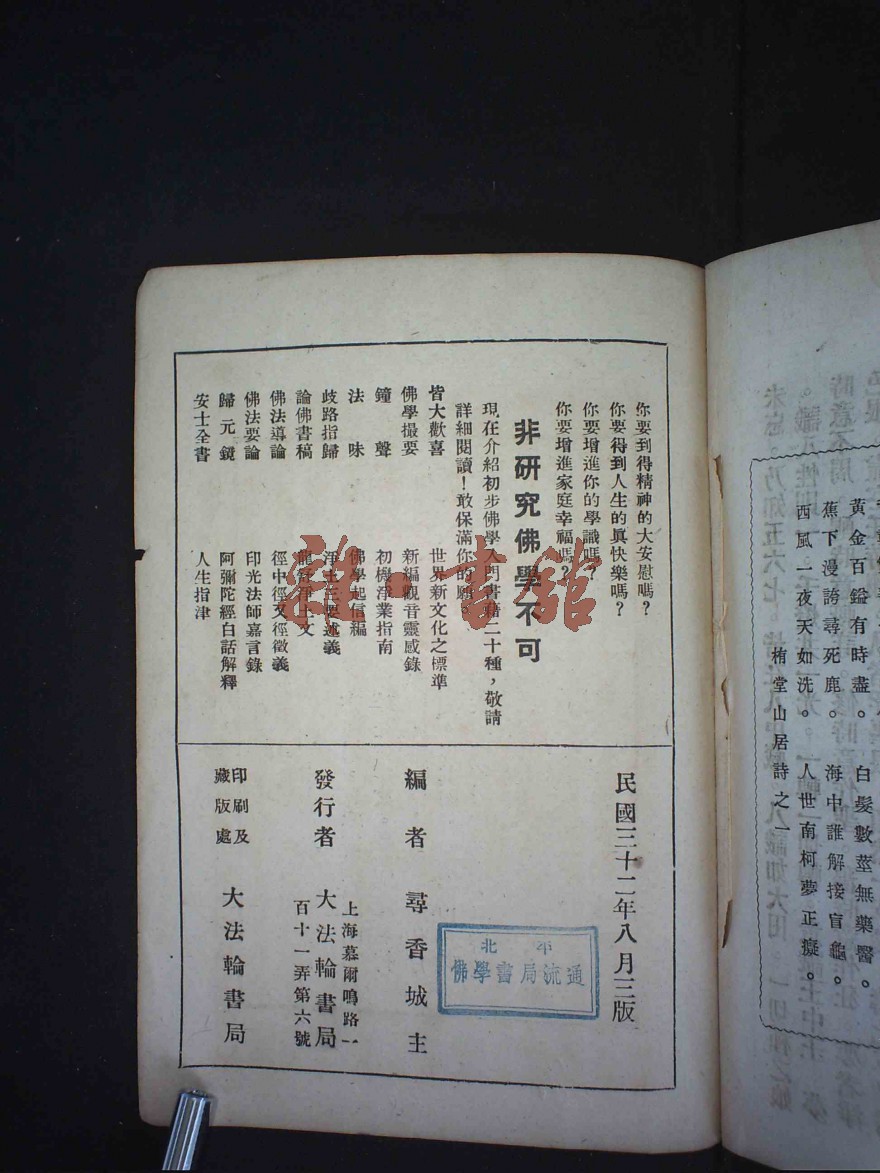 黃金百鎰有時盡。白髮數莖無藥醫
蕉下漫誇尋死鹿。海中誰解接盲龜。
西風一夜天如洗。人世南柯夢正癡。
栯堂山居詩之一
你要到得精神的大安慰嗎？
你要得到人生的眞快樂嗎？
你要增進你的學識嗎？
你要增進家庭幸福嗎？
非研究佛學不可
現在介紹初步佛學入門書籍二十種，敬請
詳細閱讀！敢保滿你的願
皆大歡喜 世界新文化之標準
佛學撮要 新編觀音靈感錄
鐘聲 初機淨業指南
法味 佛學起信編
歧路指歸 淨土三要述義
論佛書稿 龍舒淨土文
佛法導論 徑中徑又徑徵義
佛法要論 印光法師嘉言錄
歸元鏡 阿彌陀經白話解釋
安士全書 人生指津
民國三十二年八月三版
北平
佛學書局流通
編者 尋香城主
上海慕爾鳴路一
發行者 大法輪書局
百十一弄第六號
印刷及
藏版處 大法輪書局
雜·書館